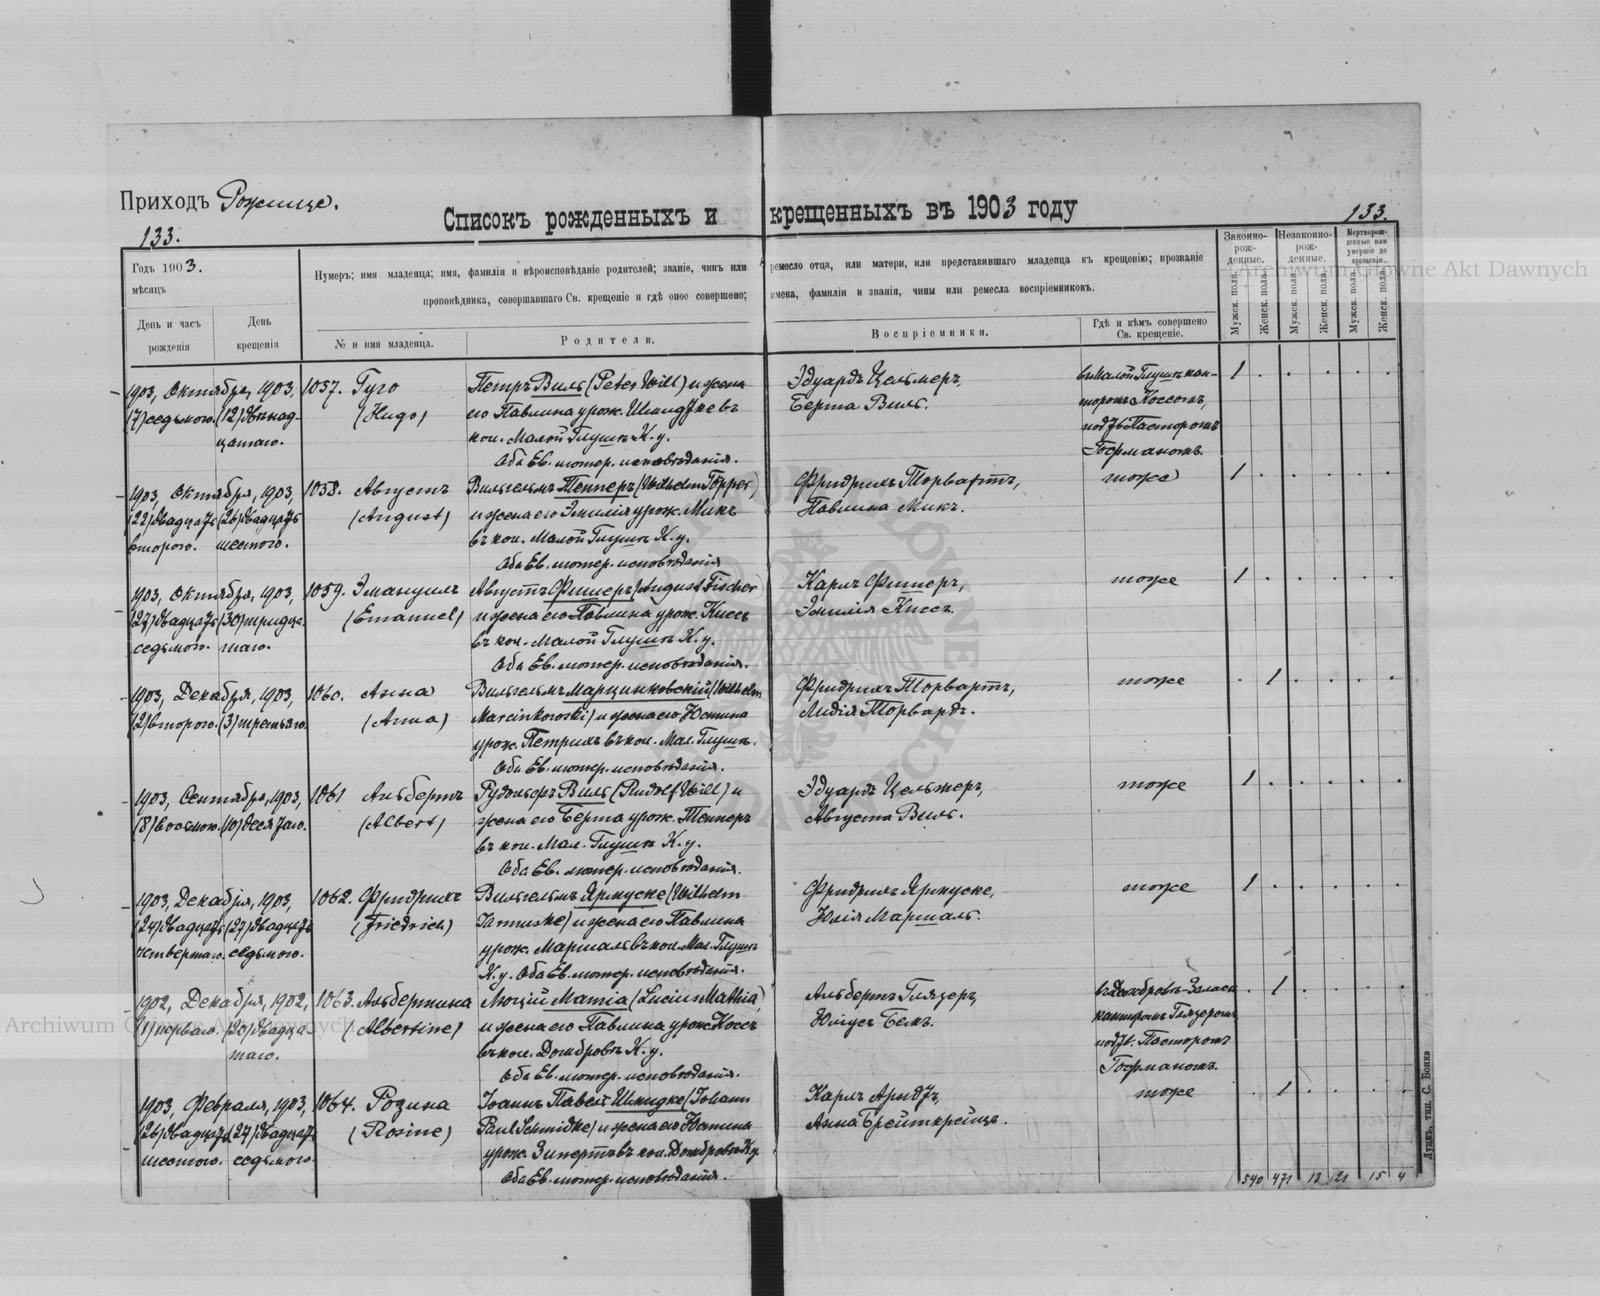 Приходъ Рожище.
Списокъ рожденныхъ и крещенныхъ въ 1903 году
133.
133.
Годъ 1903.
мѣсяцъ
День и часъ рожденія
День крещенія
Нумеръ; имя младенца; имя, фамилія и вѣроисповѣданіе родителей; званіе, чинъ или ремесло отца, или матери, или представившаго младенца къ крещенію; прозваніе
проповѣдника, совершавшаго Св. крещеніе и гдѣ оное совершено; имена, фамиліи и званія, чины или ремесла воспріемниковъ.
№ и имя младенца.
Родители.
Воспріемники.
Гдѣ и кѣмъ совершено Св. крещеніе.
Законно-рож-денные.
Незаконно-рож-денные.
Мертворож-денные или умершіе до крещенія.
Мужск. пола.
Женск. пола.
Мужск. пола.
Женск. пола.
Мужск. пола.
Женск. пола.
1903, Октября, 1903, 1057. Гуго
(7) седьмого. (12) двѣнад- (Hugo)
цатаго.
Петръ Виль (Peter Will) и жена
его Павлина урож. Шмидтке въ
кол. Малой Глушѣ К. у.
Оба Ев. лютер. исповѣданія.
Эдуардъ Цельмеръ,
Берта Виль.
въ Малой Глушѣ кан-
торомъ Коссомъ,
подтв. Пасторомъ
Гофманомъ.
1
1903, Октября, 1903, 1058. Августъ
(22) двадцать (26) двадцать (August)
второго. шестого.
Вильгельмъ Теппер (Wilhelm Töpper)
и жена его Эмилія урож. Микъ
въ кол. Малой Глушѣ К. у.
Оба Ев. лютер. исповѣданія
Фридрихъ Торвартъ,
Павлина Микъ.
тоже
1
1903, Октября, 1903, 1059. Эмануилъ
(27) двадцать (30) тридца- (Emanuel)
седьмого. таго.
Августъ Фишеръ (August Fischer)
и жена его Павлина урож. Киссъ
въ кол. Малой Глушѣ К. у.
Оба Ев. лютер. исповѣданія.
Карлъ Фишеръ,
Эмилія Киссъ.
тоже
1
1903, Декабря, 1903, 1060. Анна
(2) второго. (3) третьяго. (Anna)
Вильгельмъ Марцинковскій (Wilhelm
Marcinkowski) и жена его Юстина
урож. Петрихъ въ кол. Мал. Глушѣ.
Оба Ев. лютер. исповѣданія.
Фридрихъ Торвартъ,
Лидія Торвардъ.
тоже
1
1903, Сентября, 1903, 1061 Альбертъ
(8) восьмого. (10) десятаго. (Albert)
Рудольфъ Виль (Rudolf Will) и
жена его Берта урож. Тепперъ
въ кол. Мал. Глушѣ К. у.
Оба Ев. лютер. исповѣданія.
Эдуардъ Цельмеръ,
Августа Виль.
тоже
1
1903, Декабря, 1903, 1062. Фридрихъ
(24) двадцать (27) двадцать (Friedrich)
четвертаго. седьмого.
Вильгельмъ Ярмуске (Wilhelm
Jarmuske) и жена его Павлина
урож. Маршаль въ кол. Мал. Глушѣ
К. у. Оба Ев. лютер. исповѣданія.
Фридрихъ Ярмуске,
Юлія Маршаль.
тоже
1
1902, Декабря, 1902, 1063. Альбертина
(1) перваго. (20) двадца- (Albertine)
таго.
Люцій Матіа (Lucius Mathia)
и жена его Павлина урож. Коссъ
въ кол. Домбровѣ К. у.
Оба Ев. лютер. исповѣданія.
Альбертъ Глязеръ,
Юлiусъ Бемъ.
въ Домбровѣ
канторомъ Глязеромъ
подтв. Пасторомъ
Гофманомъ.
1
1903, Февраля, 1903, 1064. Розина
(26) двадцать (27) двадцать (Rosine)
шестого. седьмого.
Іоаннъ Павелъ Шмидке (Johann
Paul Schmidke) и жена его Юстина
урож. Зипертъ въ кол. Домбровѣ К. у.
Оба Ев. лютер. исповѣданія.
Карлъ Арндтъ,
Анна Брейткрейцъ.
тоже
1
540 471 13 21 15 4
Луцкъ, тип. С. Бонка
Archiwum Główne Akt Dawnych
Archiwum Główne Akt Dawnych